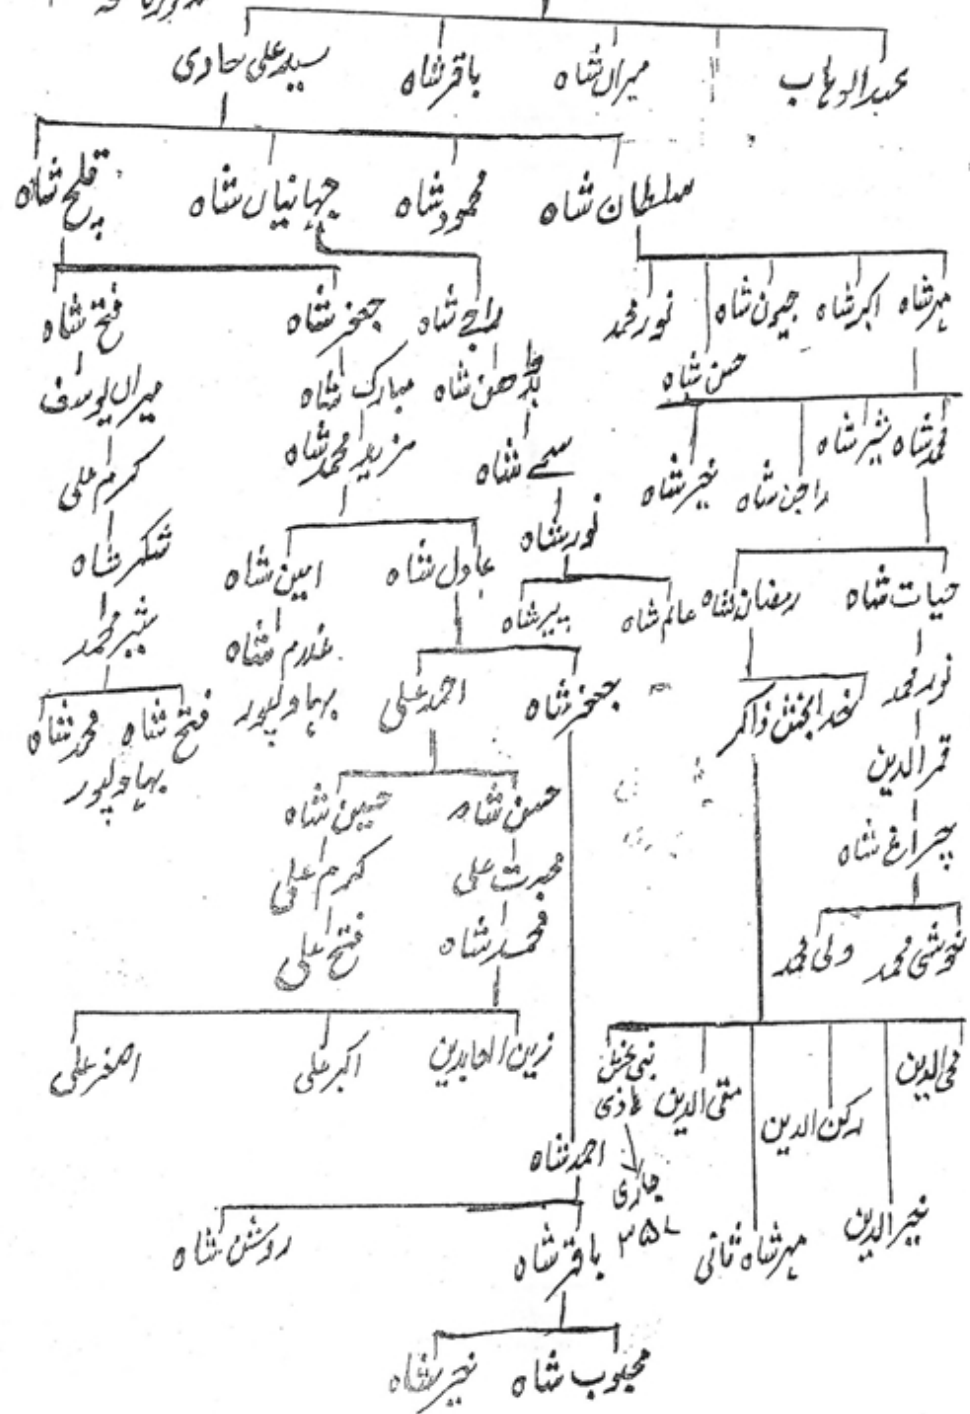 عبدالوہاب میراں شاہ باقر شاہ سید علی حاوی
سلطان شاہ محمود شاہ جہانیاں شاہ قلیج شاہ
مہر شاہ اکبر شاہ جیون شاہ نور محمد راجے شاہ جعفر شاہ فتح شاہ
حسن شاہ بڈھن شاہ مبارک شاہ میراں یوسف
محمد شاہ شیر شاہ راجن شاہ خیر شاہ سمے شاہ مزید محمد شاہ کرم علی
نور شاہ عادل شاہ امین شاہ شکر شاہ
حیات شاہ رمضان شاہ عالم شاہ پیر شاہ شیر محمد
نور محمد خدا بخش ذاکر جعفر شاہ احمد علی غلام شاہ
بہاولپور
فتح شاہ محمد شاہ
بہاولپور
قمرالدین
چراغ شاہ حسن شاہ حسین شاہ
محبت علی کرم علی
خوشی محمد ولی محمد محمد شاہ فتح علی
محی الدین رکن الدین متقی الدین نبی بخش زین العابدین اکبر علی اصغر علی
غازی
احمد شاہ
جاری
خیرالدین مہر شاہ ثانی ۳۵۸ باقر شاہ روشن شاہ
محبوب شاہ خیر شاہ